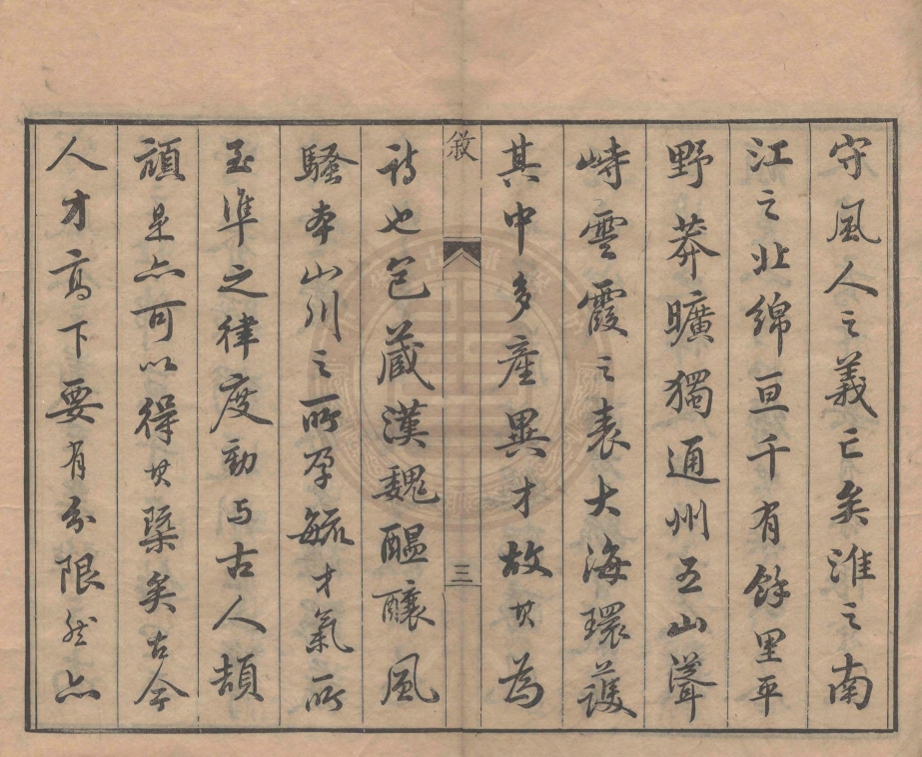 守風人之義亡矣淮之南
江之北綿亘千有餘里平
野莽曠獨通州五山聳
峙雲霞之表大海環護
其中多產異才故其為
敘
三
詩也包藏漢魏醞釀風
騷本山川之所孕毓才氣所
至準之律度動与古人頡
頏是亦可以得其槩矣古今
人才高下要有分限然亦